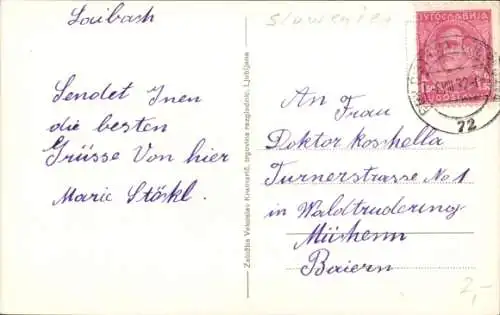 Laibach
Slowenien
Sendet Inen
die besten
Grüsse Von hier
Marie Stöskl.
An Frau
Doktor Koschella
Turnerstrasse No 1
in Waldtrudering
Müshenn
Baiern
2,-
ЈУГОСЛАВИЈА
JUGOSLAVIJA
72
Založba Vekoslav Kramarič, trgovina razglednic, Ljubljana